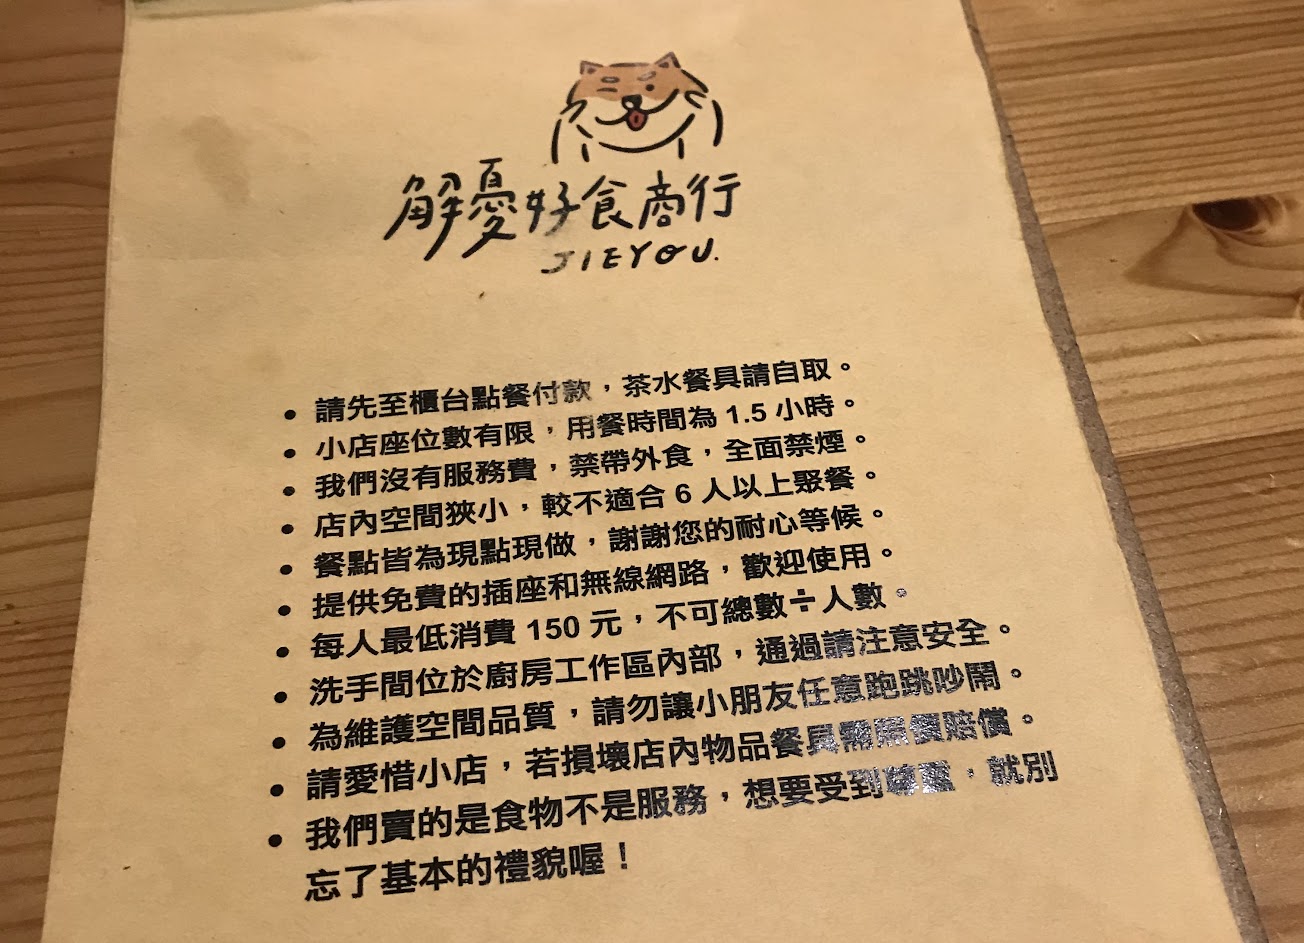 解憂好食商行
JIEYOU.
• 請先至櫃台點餐付款，茶水餐具請自取。
• 小店座位數有限，用餐時間為 1.5 小時。
• 我們沒有服務費，禁帶外食，全面禁煙。
• 店內空間狹小，較不適合 6 人以上聚餐。
• 餐點皆為現點現做，謝謝您的耐心等候。
• 提供免費的插座和無線網路，歡迎使用。
• 每人最低消費 150 元，不可總數÷人數。
• 洗手間位於廚房工作區內部，通過請注意安全。
• 為維護空間品質，請勿讓小朋友任意跑跳吵鬧。
• 請愛惜小店，若損壞店內物品餐具需照價賠償。
• 我們賣的是食物不是服務，想要受到尊重，就別
忘了基本的禮貌喔！